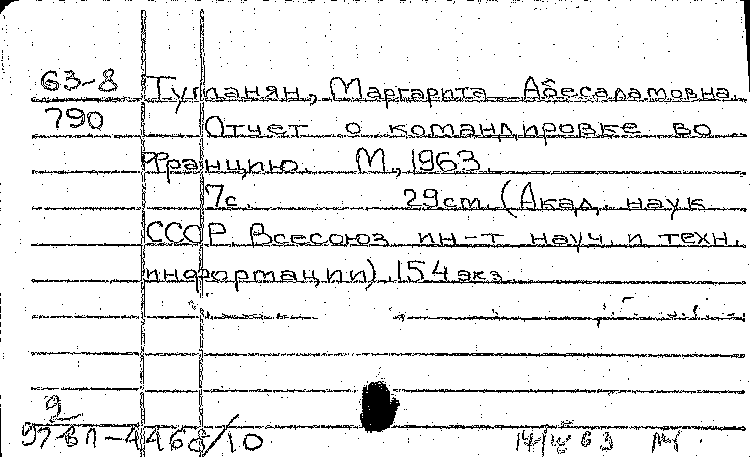 63-8 Тугланян, Маргарита Абесаламовна.
790 Отчет о командировке во
Францию. М., 1963.
7с. 29cm. (Акад. наук
СССР. Всесоюз ин-т науч. и техн.
информации). 154 экз.
9
/10
63